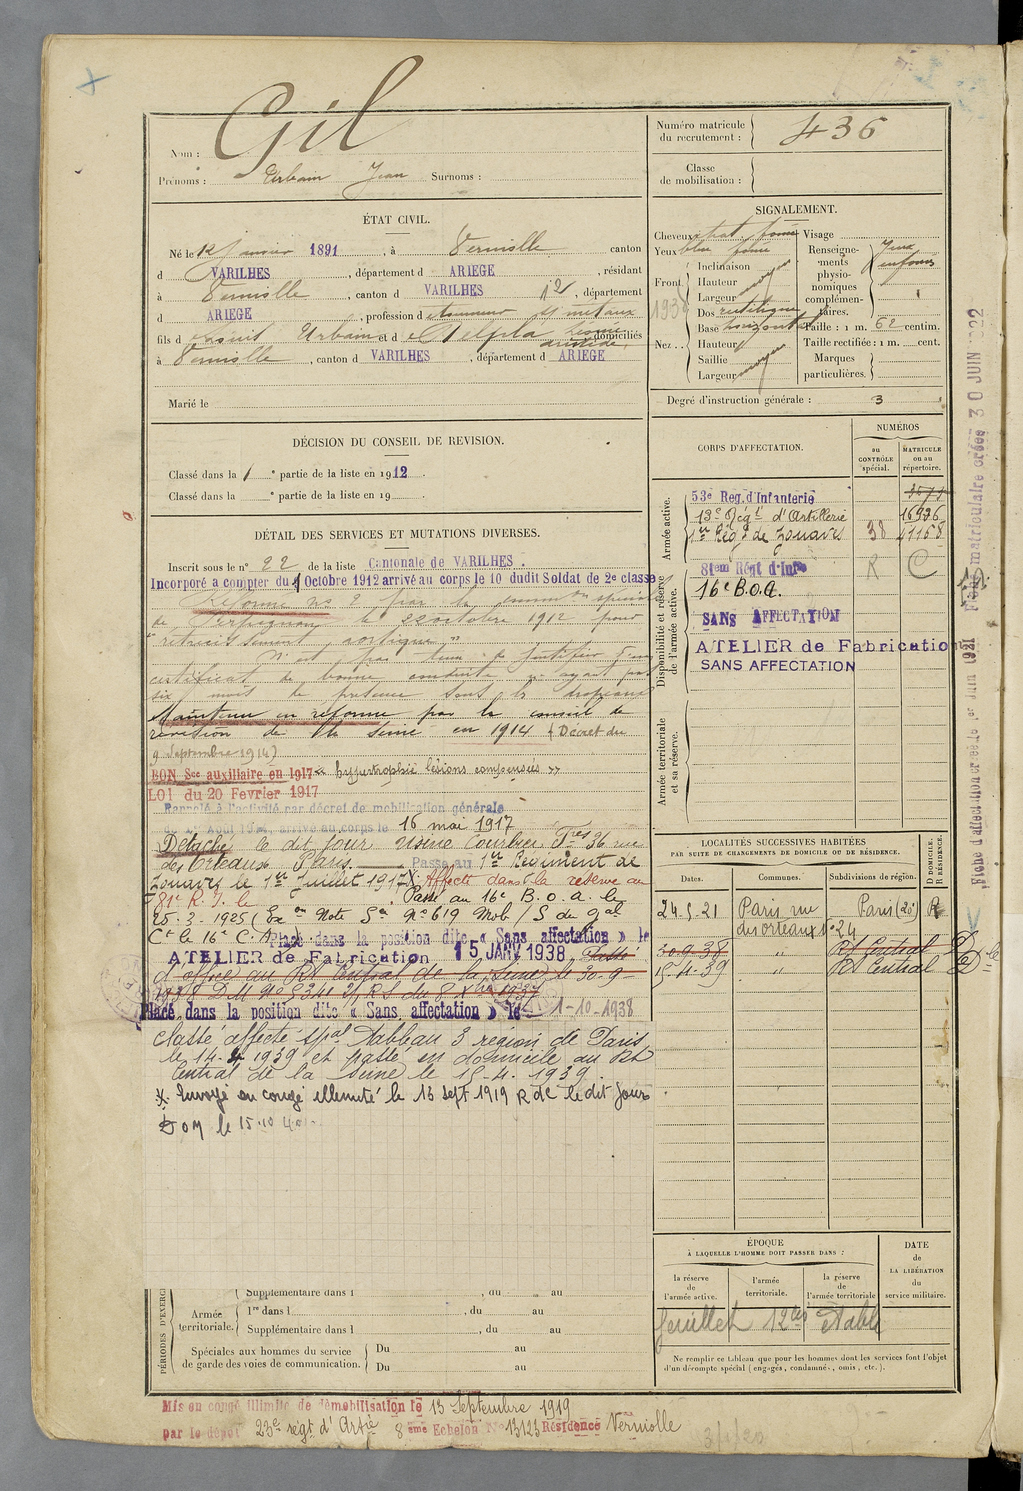 Gil
Nom :
Prénoms : Urbain Jean Surnoms :
Numéro matricule
du recrutement : 436
Classe
de mobilisation :
ÉTAT CIVIL.
Né le 12 Janvier 1891, à Verniolle, canton
d VARILHES, département d ARIEGE, résidant
à Verniolle, canton d VARILHES, département
d ARIEGE, profession d tourneur s/ métaux
fils d Urbain et d domiciliés
à Verniolle, canton d VARILHES, département d ARIEGE
Marié le
SIGNALEMENT.
Cheveux Visage
Yeux bleu Renseigne-
ments
physio-
nomiques
complémen-
taires. Yeux enfoncés
Front Inclinaison moyen
Hauteur
Largeur
Dos rectiligne
Base horizontal
Taille : 1 m. 62 centim.
Nez . . Hauteur moyen
Taille rectifiée : 1 m. cent.
Saillie
Largeur
Marques
particulières.
Degré d'instruction générale : 3
DÉCISION DU CONSEIL DE REVISION.
Classé dans la 1e partie de la liste en 1912.
Classé dans la e partie de la liste en 19
DÉTAIL DES SERVICES ET MUTATIONS DIVERSES.
Inscrit sous le n° 22 de la liste Cantonale de VARILHES.
Incorporé a compter du 1 Octobre 1912 arrivé au corps le 10 dudit Soldat de 2e classe
Réformé no 2 par la common spéciale
de Perpignan le 22 octobre 1912 pour
"rétrécissement aortique"
N'est pas tenu de justifier d'un
certificat de bonne conduite ayant
six mois de présence sous les drapeaux
Maintenu en réforme par le conseil de
révision de la Seine en 1914 (Décret du
9 Septembre 1914)
BON Sce auxiliaire en 1917 « hypertrophie lésions compensées »
LOI du 20 Fevrier 1917
Rappelé à l'activité par décret de mobilisation générale
arrivé au corps le 16 mai 1917
Détaché le dit jour Usine Courbier Fres 36 rue
des Orteaux Paris. Passe au 1er Régiment de
Zouaves le 1er Juillet 1917 Affecté dans la réserve au
81e R.I. le Passé au 16e B.O.A. le
25-3-1925 (Exon Note Sce No 619 Mob/S du gal
Ct le 16e C.A.) Placé dans la position dite « Sans affectation » le
ATELIER de Fabrication 15 JANV 1938. Passé
d'office au Rt Central de la Seine le 30-9-
1938
Placé dans la position dite « Sans affectation » le 1-10-1938
Classé affecté spal Tableau 3 région de Paris
le 14-4 1939 et passe en domicile au Rt
Central de la Seine le 15.4.1939.
X Envoyé en congé illimité le 13 sept 1919 R de le dit jour
DOM le 15.10.40
CORPS D'AFFECTATION.
NUMÉROS
au
CONTRÔLE
spécial.
MATRICULE
ou au
répertoire.
Armée active.
53e Reg. d'Infanterie
13e Régt d'Artillerie 16936
1er Régt de Zouaves 38 41158
Disponibilité et réserve
de l'armée active.
81em Régt d'Infie R C
16e B.O.A.
SANS AFFECTATION
ATELIER de Fabrication
SANS AFFECTATION
Armée territoriale
et sa réserve.
LOCALITÉS SUCCESSIVES HABITÉES
PAR SUITE DE CHANGEMENTS DE DOMICILE OU DE RÉSIDENCE.
Dates. Communes. Subdivisions de région. D DOMICILE. R RÉSIDENCE.
24-5-21 Paris rue Paris (20e) R
des orteaux no 24
30-9-38 " Rt Central D
15-4-39 " Rt Central D
ÉPOQUE
À LAQUELLE L'HOMME DOIT PASSER DANS :
DATE
de
LA LIBÉRATION
du
service militaire.
la réserve
de
l'armée active.
l'armée
territoriale.
la réserve
de
l'armée territoriale
feuillet
Ne remplir ce tableau que pour les hommes dont les services font l'objet
d'un décompte spécial (engagés, condamnés, omis, etc.).
PÉRIODES D'EXERCI
Supplémentaire dans l , du au
Armée
territoriale.
1re dans l , du au
Supplémentaire dans l , du au
Spéciales aux hommes du service
de garde des voies de communication.
Du au
Du au
Mis en congé illimité de démobilisation le 13 Septembre 1919
par le dépôt 23e régt d'Artie 8ème Echelon No 13123 Résidence Verniolle
Fiche matriculaire créée 30 JUIN 1922
Fiche d'affectation créée le 1er Juin 1921